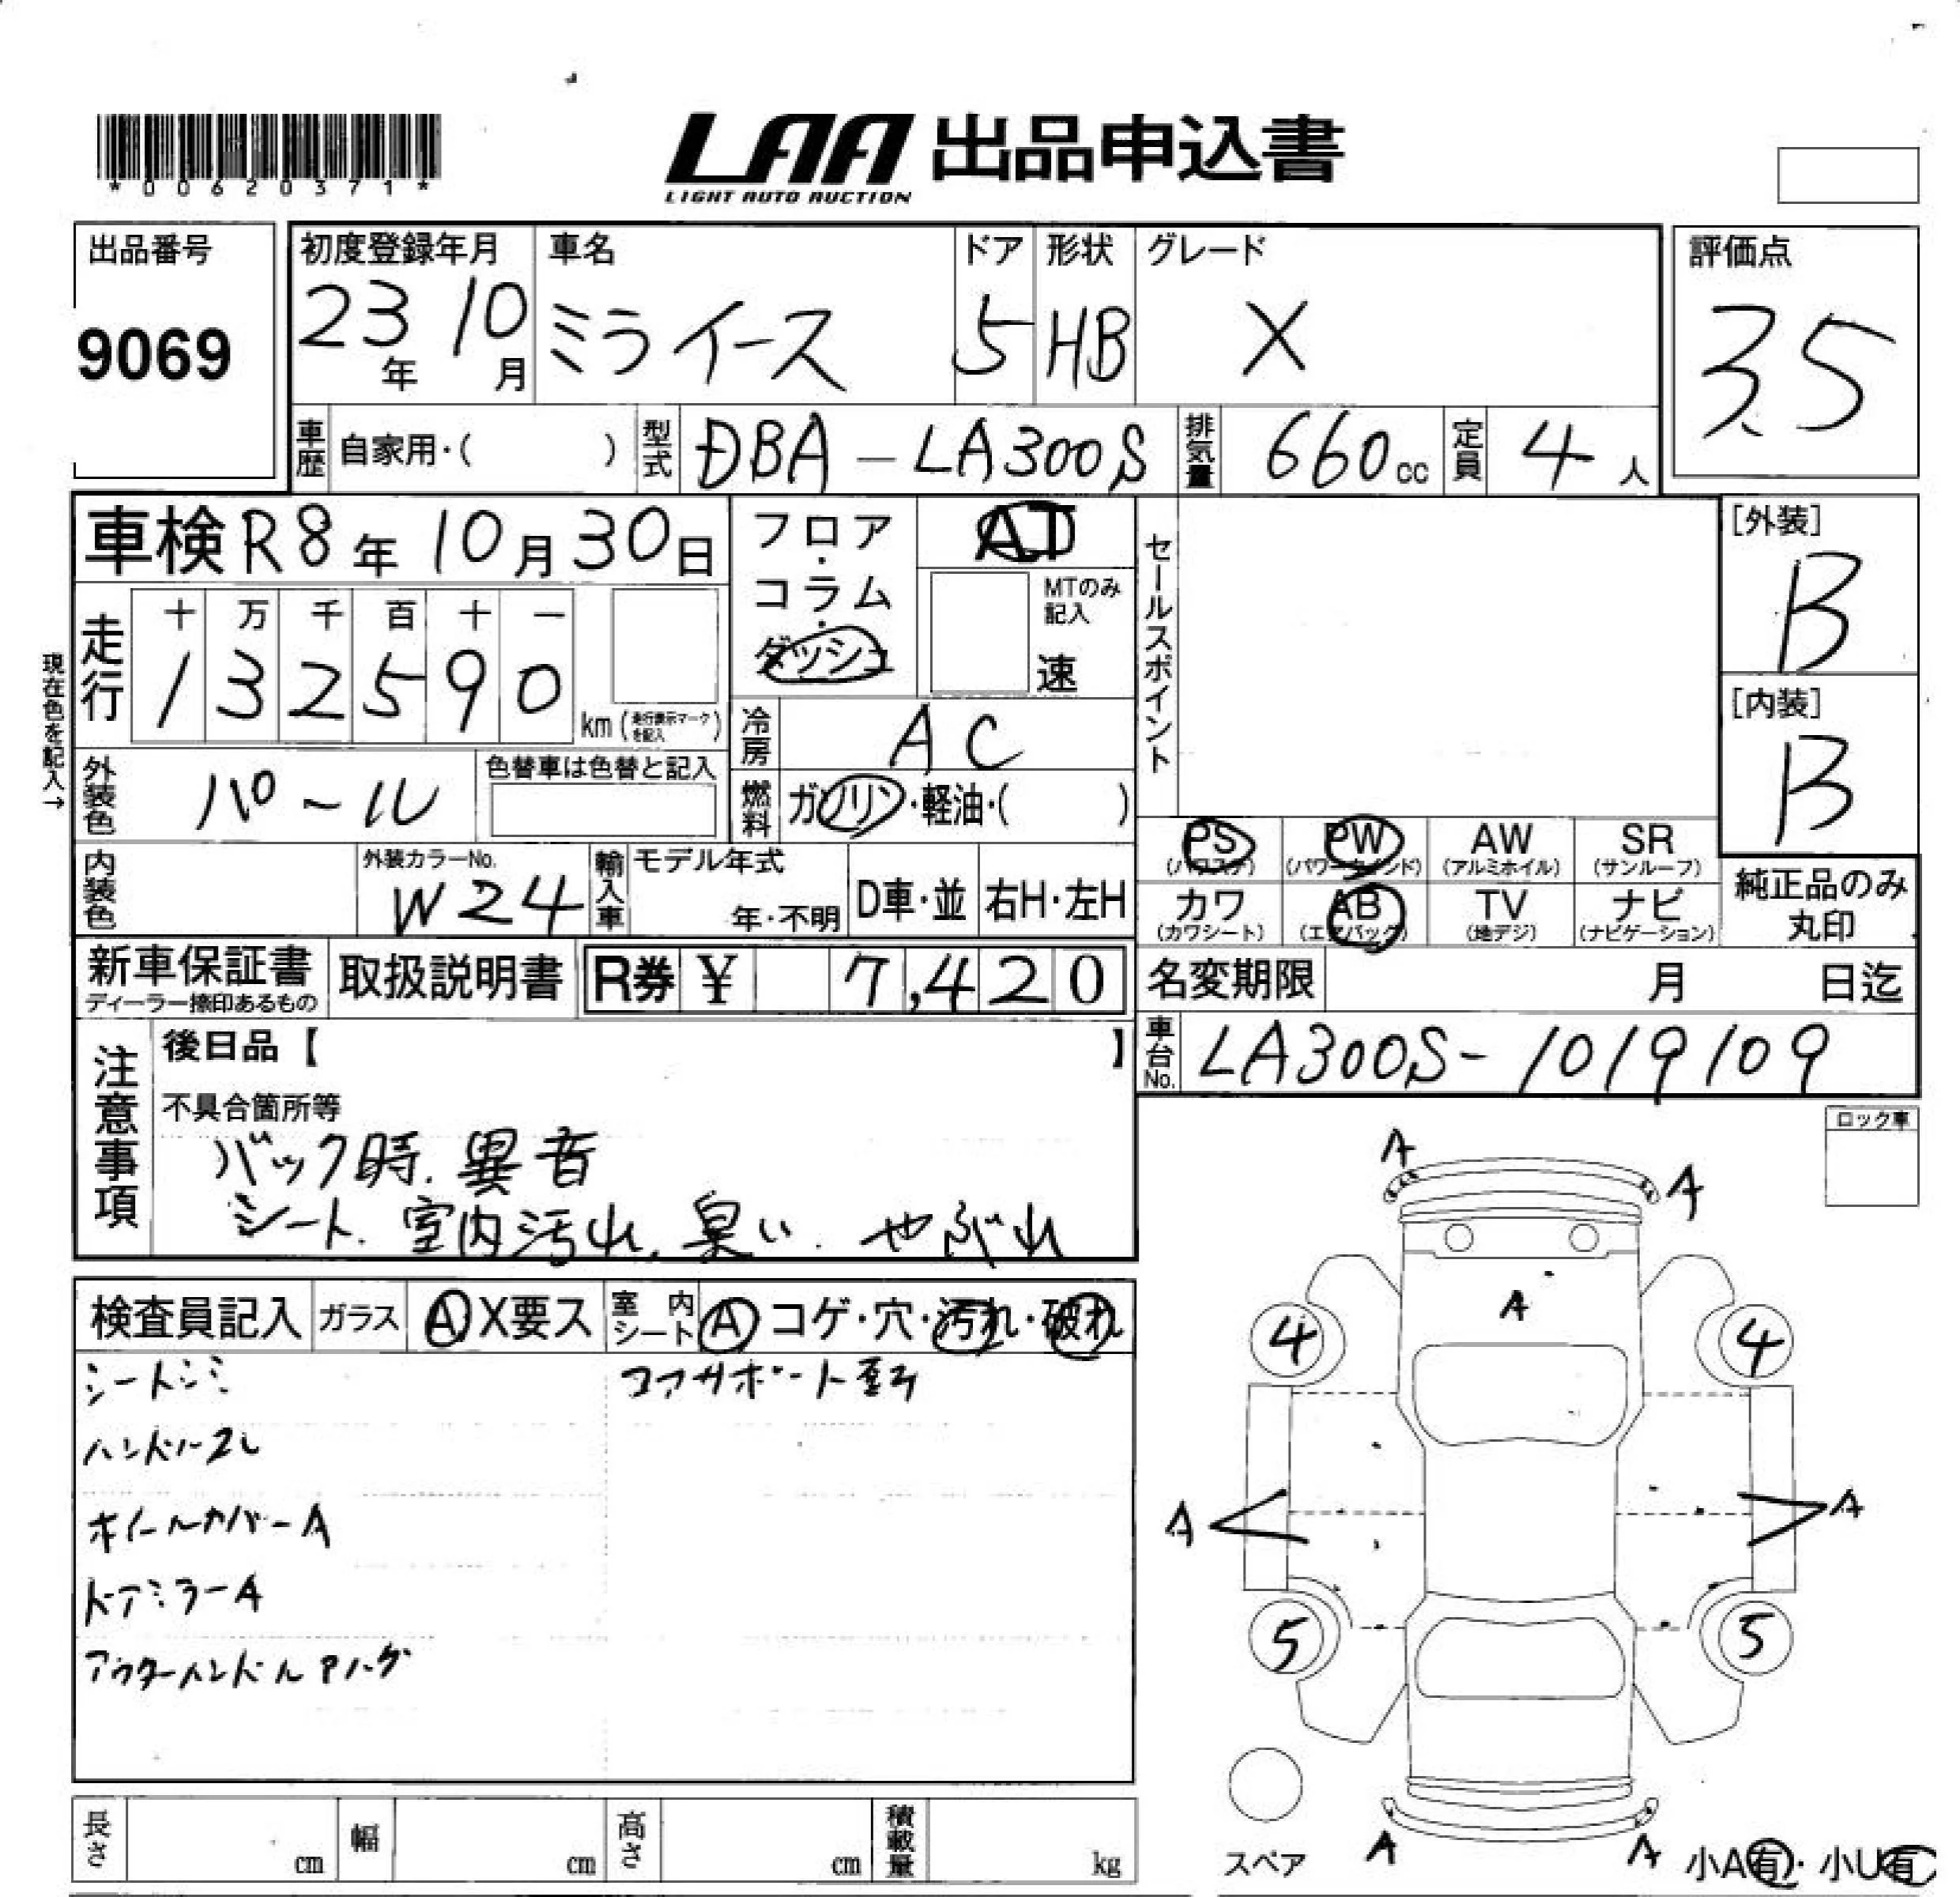 *00620371*
LAA 出品申込書
LIGHT AUTO AUCTION
出品番号
9069
初度登録年月
23年 10月
車名
ミライース
ドア
5
形状
HB
グレード
X
評価点
3.5
車歴 自家用・( )
型式 DBA-LA300S
排気量 660cc
定員 4人
車検 R8年 10月 30日
フロア・コラム・ダッシュ
AT
MTのみ記入
速
セールスポイント
[外装]
B
[内装]
B
現在色を記入→
走行
十 万 千 百 十 一
1 3 2 5 9 0 km (走行表示マークを記入)
冷房 AC
外装色 パール
色替車は色替と記入
燃料 ガソリン・軽油・( )
PS (パワステ)
PW (パワーウインド)
AW (アルミホイル)
SR (サンルーフ)
カワ (カワシート)
AB (エアバック)
TV (地デジ)
ナビ (ナビゲーション)
純正品のみ丸印
内装色
外装カラーNo.
W24
輸入車 モデル年式
年・不明
D車・並
右H・左H
新車保証書
ディーラー捺印あるもの
取扱説明書
R券 ¥ 7,420
名変期限 月 日迄
車台No. LA300S-1019109
注意事項
後日品【 】
不具合箇所等
バック時.異音
シート.室内汚れ.臭い.やぶれ
ロック車
検査員記入
ガラス A X要ス
室内シート A コゲ・穴・汚れ・破れ
シートシミ
コアサポート歪み
ハンドルスレ
ホイールカバーA
ドアミラーA
アウターハンドルPハゲ
A
A
A
4 4
A A
5 5
スペア
A
A
小A有・小U有
長さ cm
幅 cm
高さ cm
積載量 kg